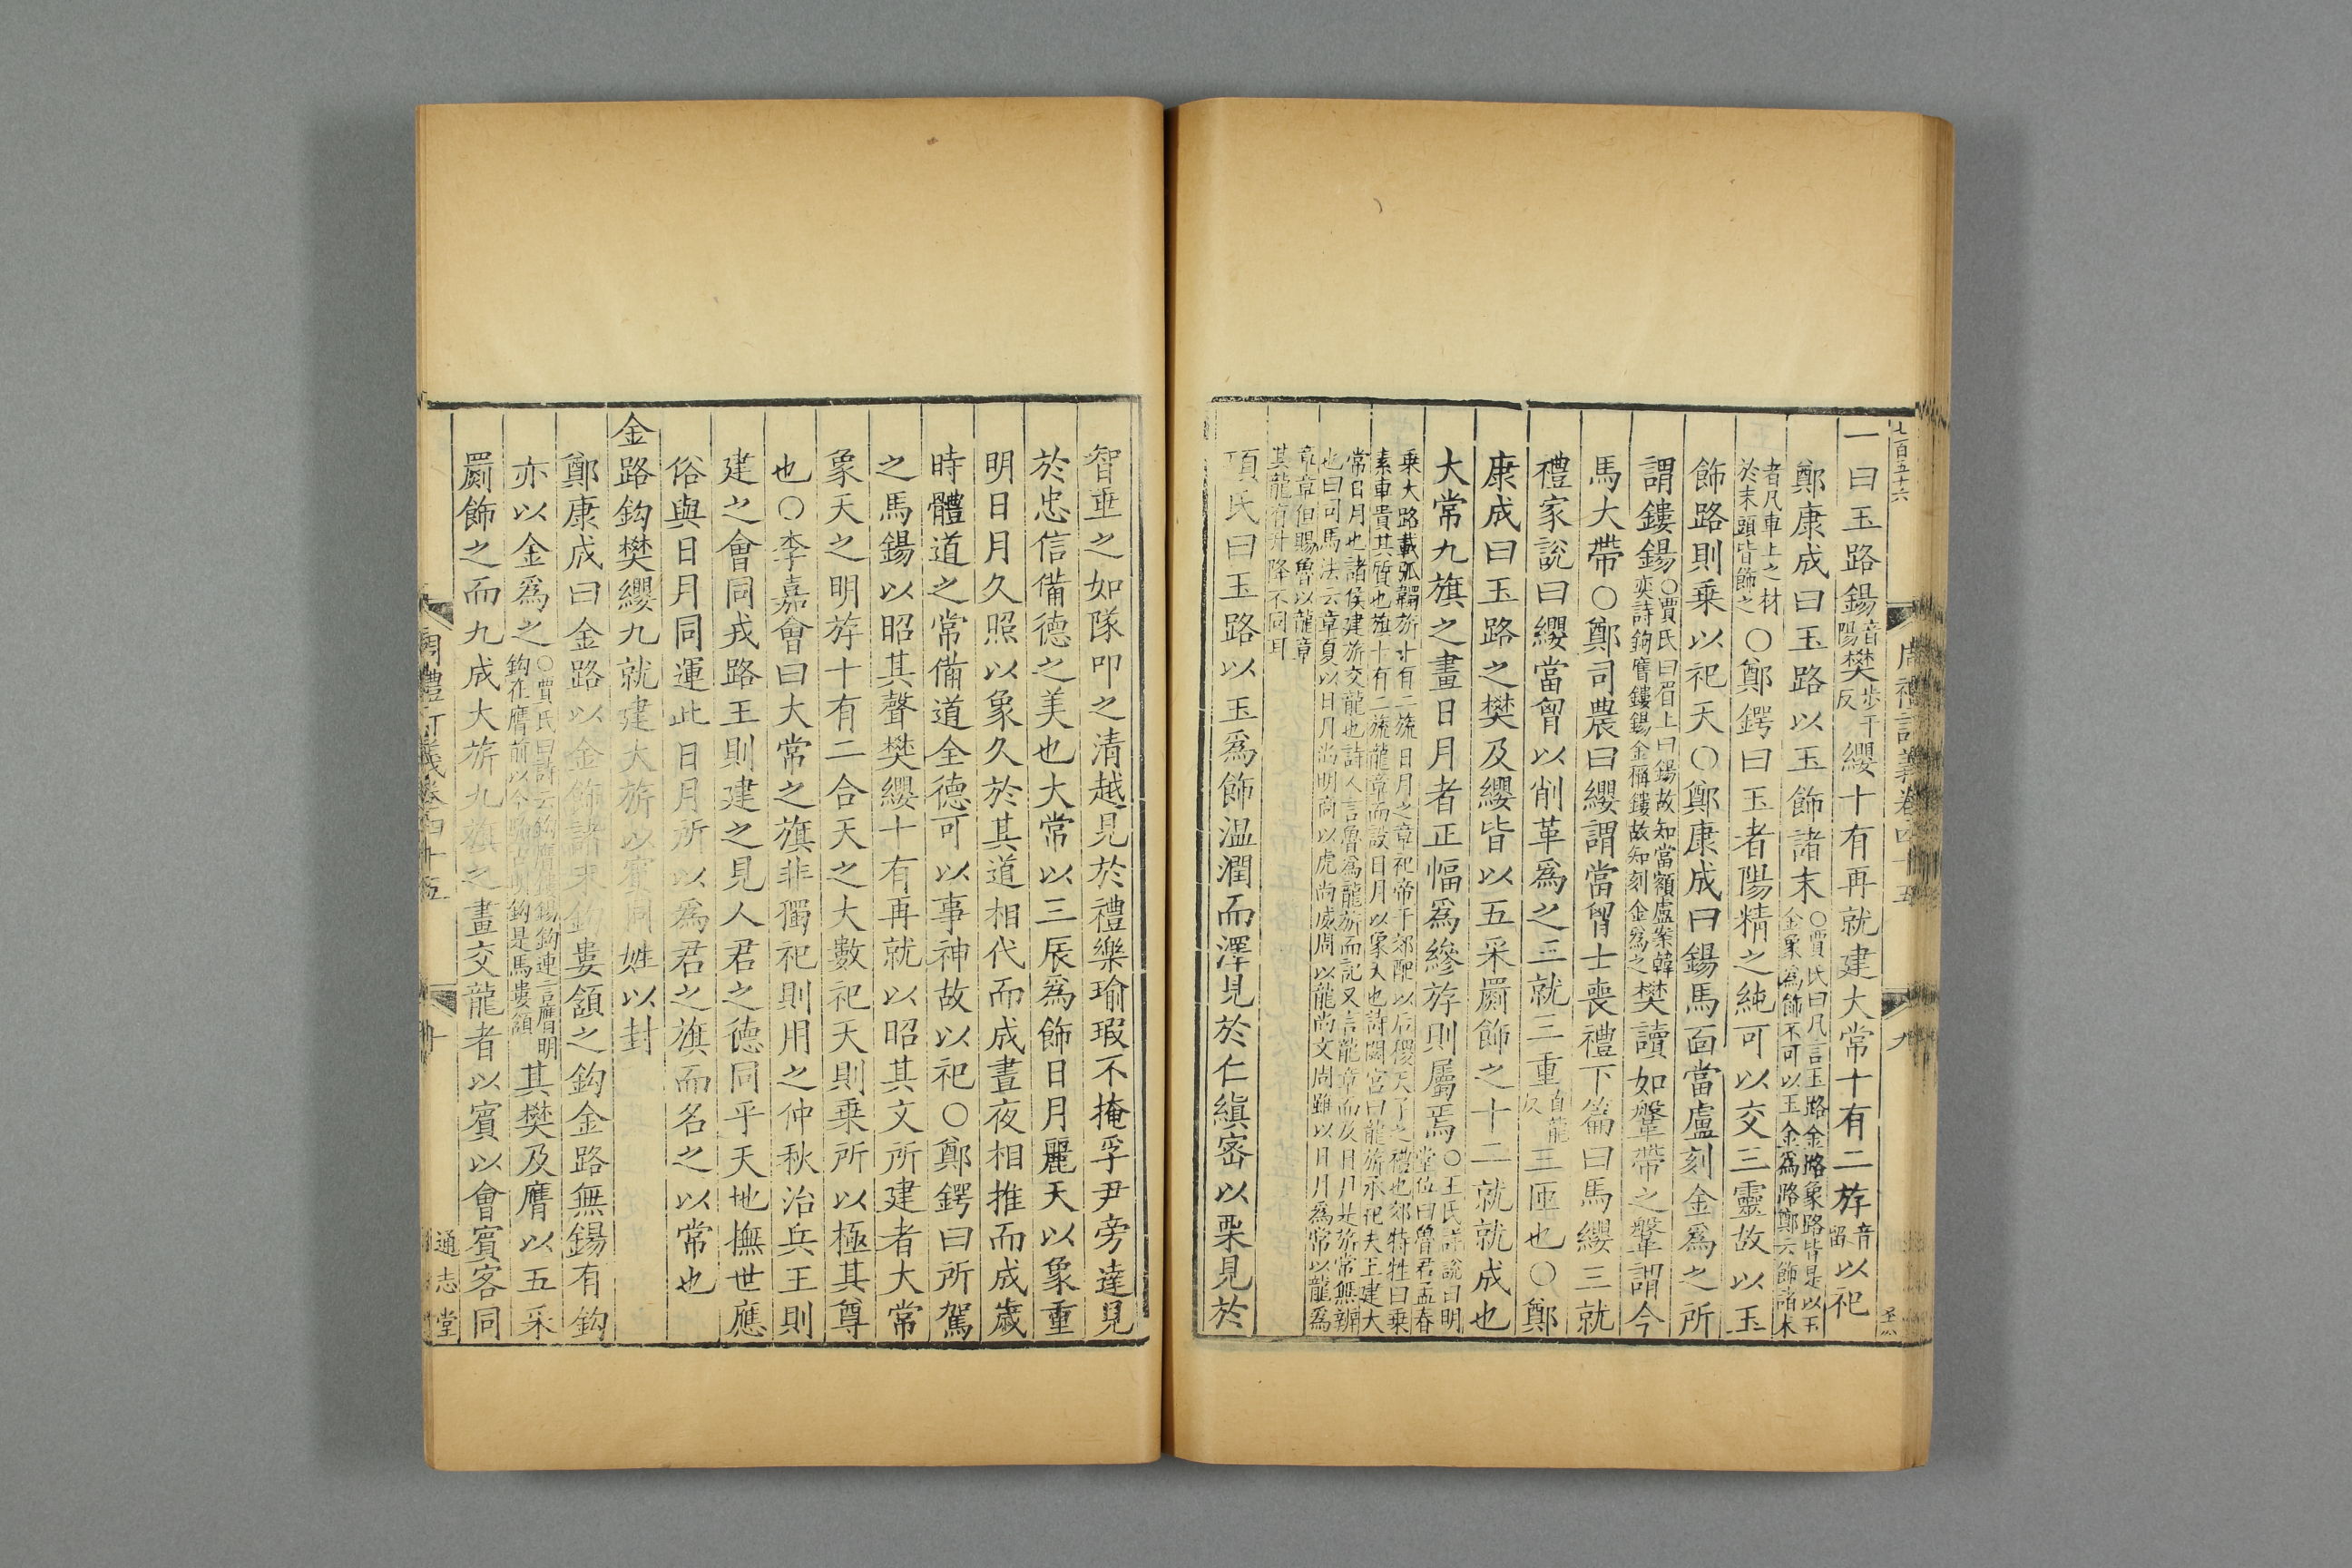 七百五十六
周禮訂義卷四十五
九
一曰玉路鍚音陽樊步干反纓十有再就建大常十有二斿音留以祀
鄭康成曰玉路以玉飾諸末○賈氏曰凡言玉路金路象路皆是以玉金象為飾不可以玉金為路鄭云飾諸末
者凡車上之材於末頭皆飾之○鄭鍔曰玉者陽精之純可以交三靈故以玉
飾路則乗以祀天○鄭康成曰鍚馬面當盧刻金爲之所
謂鏤鍚○賈氏曰眉上曰鍚故知當額盧案韓奕詩鉤膺鏤鍚金稱鏤故知刻金爲之樊讀如鞶帶之鞶謂今
馬大帶○鄭司農曰纓謂當胷士喪禮下篇曰馬纓三就
禮家說曰纓當胷以削革爲之三就三重直龍反三匝也○鄭
康成曰玉路之樊及纓皆以五采罽飾之十二就就成也
大常九旗之畫日月者正幅爲縿斿則屬焉○王氏詳說曰明堂位曰魯君孟春
乗大路載弧韣旂十有二旒日月之章祀帝于郊配以后稷天子之禮也郊特牲曰乗素車貴其質也旂十有二旒龍章而設日月以象天也詩閟宮曰龍旂承祀夫王建大
常日月也諸侯建旂交龍也詩人言魯爲龍旂而記又言龍章而及日月是旂常無辨也曰司馬法云章夏以日月尚明商以虎尚威周以龍尚文周雖以日月為常以龍爲
章章但賜魯以龍章其龍有升降不同耳
項氏曰玉路以玉爲飾溫潤而澤見於仁縝密以栗見於
智垂之如隊叩之清越見於禮樂瑜瑕不掩孚尹旁達見
於忠信備德之美也大常以三辰爲飾日月麗天以象重
明日月久照以象久於其道相代而成晝夜相推而成歲
時體道之常備道全德可以事神故以祀○鄭鍔曰所駕
之馬鍚以昭其聲樊纓十有再就以昭其文所建者大常
象天之明斿十有二合天之大數祀天則乗所以極其尊
也○李嘉會曰大常之旗非獨祀則用之仲秋治兵王則
建之會同戎路王則建之見人君之德同乎天地撫世應
俗與日月同運此日月所以爲君之旗而名之以常也
金路鉤樊纓九就建大旂以賓同姓以封
鄭康成曰金路以金飾諸末鉤婁頷之鉤金路無鍚有鉤
亦以金爲之○賈氏曰詩云鉤膺鏤鍚鉤連言膺明鉤在膺前以今驗古明鉤是馬婁頷其樊及膺以五采
罽飾之而九成大旂九旗之畫交龍者以賓以會賓客同
周禮訂義卷四十五
十
通志堂